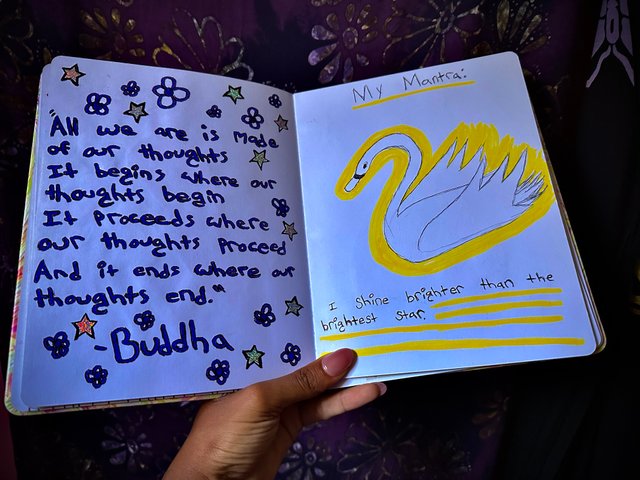 "All we are is made
of our thoughts
It begins where our
thoughts begin
It proceeds where
our thoughts proceed
And it ends where our
thoughts end."
-Buddha
My Mantra:
I shine brighter than the
brightest star.